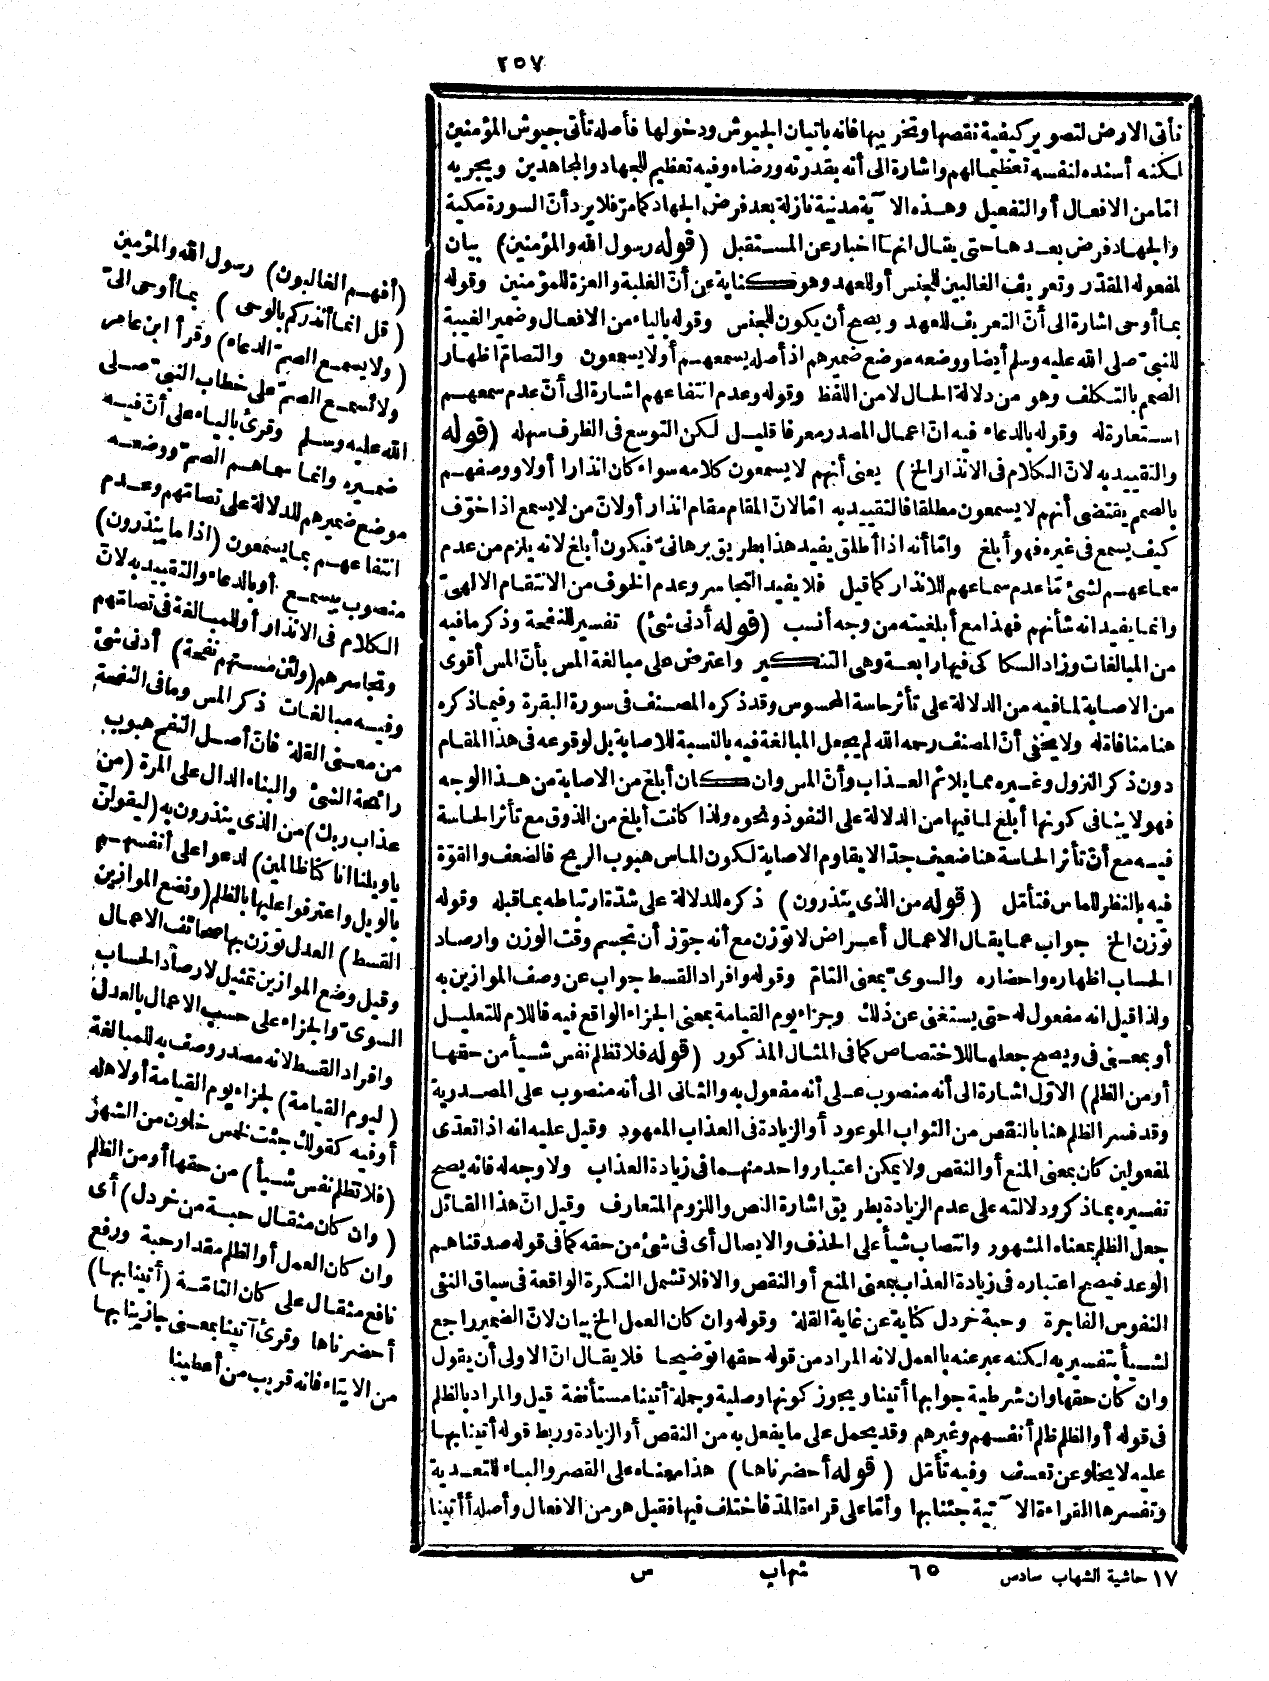 ٢٥٧
نأتي الارض لتصوير كيفية نقصها وتخريبها فانه باتيان الجيوش ودخولها فأصله تأتي جيوش المؤمنين
لكنه أسنده لنفسه تعظيما لهم واشارة الى أنه بقدرته ورضاه وفيه تعظيم للجهاد والمجاهدين ويجريه
امّا من الافعال أو التفعيل وهذه الآية مدنية نازلة بعد فرض الجهاد كما مرّ فلا يرد أنّ السورة مكية
والجهاد فرض بعدها حتى يقال انها اخبار عن المستقبل (قوله رسول الله والمؤمنين) بيان
لمفعوله المقدّر وتعريف الغالبين للجنس أو للعهد وهو كناية عن أنّ الغلبة والعزة للمؤمنين وقوله
بما أوحى اشارة الى أنّ التعريف للعهد ويصح أن يكون للجنس وقوله بالياء من الافعال وضمير الغيبة
للنبيّ صلى الله عليه وسلم أيضا ووضعه موضع ضميرهم اذ أصله يسمعهم أو لا يسمعون والتصامّ اظهار
الصمم بالتكلف وهو من دلالة الحال لا من اللفظ وقوله وعدم انتفاعهم اشارة الى أنّ عدم سمعهم
استعارة له وقوله بالدعاء فيه انّ اعمال المصدر معرفا قليل لكن التوسع في الظرف سهله (قوله
والتقييد به لانّ الكلام في الانذار الخ) يعني أنهم لا يسمعون كلامه سواء كان انذارا أولا ووصفهم
بالصمم يقتضى أنهم لا يسمعون مطلقا فالتقييد به امّا لانّ المقام مقام انذار أو لانّ من لا يسمع اذا خوّف
كيف يسمع في غيره فهو أبلغ وامّا أنه اذا أطلق يفيد هذا بطريق برهانيّ فيكون أبلغ لانه يلزم من عدم
سماعهم لشئ مّا عدم سماعهم للانذار كما قيل فلا يفيد التجاسر وعدم الخوف من الانتقام الالهيّ
وانما يفيد انه شأنهم فهذا مع أبلغيته من وجه أنسب (قوله أدنى شئ) تفسير للنفحة وذكر ما فيه
من المبالغات وزاد السكاكي فيها رابعة وهي التنكير واعترض على مبالغة المس بأنّ المس أقوى
من الاصابة لما فيه من الدلالة على تأثر حاسة المحسوس وقد ذكره المصنف في سورة البقرة وفيما ذكره
هنا منافاة له ولا يخفى أنّ المصنف رحمه الله لم يجعل المبالغة فيه بالنسبة للاصابة بل لوقوعه في هذا المقام
دون ذكر النزول وغيره مما يلائم العذاب وأنّ المس وان كان أبلغ من الاصابة من هذا الوجه
فهو لا ينافي كونها أبلغ لما فيها من الدلالة على النفوذ ونحوه ولذا كانت أبلغ من الذوق مع تأثر الحاسة
فيه مع أنّ تأثر الحاسة هنا ضعيف جدّا لا يقاوم الاصابة لكون الماس هبوب الريح فالضعف والقوّة
فيه بالنظر للماس فتأمّل (قوله من الذي ينذرون) ذكره للدلالة على شدّة ارتباطه بما قبله وقوله
توزن الخ جواب عما يقال الاعمال أعراض لا توزن مع أنه جوّز أن تجسم وقت الوزن وارصاد
الحساب اظهاره واحضاره والسويّ بمعنى التامّ وقوله وافراد القسط جواب عن وصف الموازين به
ولذا قيل انه مفعول له حتى يستغنى عن ذلك وجزاء يوم القيامة بمعنى الجزاء الواقع فيه فاللام للتعليل
أو بمعنى في ويصح جعلها للاختصاص كما في المثال المذكور (قوله فلا تظلم نفس شيأ من حقها
أو من الظلم) الاوّل اشارة الى أنه منصوب على أنه مفعول به والثاني الى أنه منصوب على المصدرية
وقد فسر الظلم هنا بالنقص من الثواب الموعود أو الزيادة في العذاب المعهود وقيل عليه انه اذا تعدّى
لمفعولين كان بمعنى المنع أو النقص ولا يمكن اعتبار واحد منهما في زيادة العذاب ولا وجه له فانه يصح
تفسيره بما ذكر ودلالته على عدم الزيادة بطريق اشارة النص واللزوم المتعارف وقيل انّ هذا القائل
جعل الظلم بمعناه المشهور وانتصاب شيأ على الحذف والايصال أي في شئ من حقه كما في قوله صدقناهم
الوعد فيصح اعتباره في زيادة العذاب بمعنى المنع أو النقص والا فلا تشمل النكرة الواقعة في سياق النفي
النفوس الفاجرة وحبة خردل كناية عن غاية القلة وقوله وان كان العمل الخ بيان لانّ الضمير راجع
لشيأ بتفسيريه لكنه عبر عنه بالعمل لانه المراد من قوله حقها توضيحا فلا يقال انّ الاولى أن يقول
وان كان حقها وان شرطية جوابها أتينا ويجوز كونها وصلية وجملة أتينا مستأنفة قيل والمراد بالظلم
في قوله أو الظلم ظلم أنفسهم وغيرهم وقد يحمل على ما يفعل به من النقص أو الزيادة وربط قوله أتينا بها
عليه لا يخلو عن تعسف وفيه تأمّل (قوله أحضرناها) هذا معناه على القصر والباء للتعدية
وتفسرها القراءة الآتية جئنا بها وأمّا على قراءة المدّ فاختلف فيها فقيل هو من الافعال وأصله أأتينا
١٧ حاشية الشهاب سادس ٦٥ شهاب س
(أفهم الغالبون) رسول الله والمؤمنين
(قل انما أنذركم بالوحى) بما أوحى الىّ
(ولا يسمع الصمّ الدعاء) وقرأ ابن عامر
ولا تسمع الصمّ على خطاب النبيّ صلى
الله عليه وسلم وقرئ بالياء على أنّ فيه
ضميره وانما سماهم الصمّ ووضعه
موضع ضميرهم للدلالة على تصامّهم وعدم
انتفاعهم بما يسمعون (اذا ما ينذرون)
منصوب بيسمع أو بالدعاء والتقييد به لانّ
الكلام في الانذار أو للمبالغة في تصامّهم
وتجاسرهم (ولئن مستهم نفحة) أدنى شئ
وفيه مبالغات ذكر المس وما في النفحة
من معنى القلة فانّ أصل النفح هبوب
رائحة الشئ والبناء الدال على المرة (من
عذاب ربك) من الذي ينذرون به (ليقولنّ
يا ويلنا انا كنا ظالمين) لدعوا على أنفسهم
بالويل واعترفوا عليها بالظلم (ونضع الموازين
القسط) العدل توزن بها صحائف الاعمال
وقيل وضع الموازين تمثيل لارصاد الحساب
السويّ والجزاء على حسب الاعمال بالعدل
وافراد القسط لانه مصدر وصف به للمبالغة
(ليوم القيامة) لجزاء يوم القيامة أو لاهله
أو فيه كقولك جئت لخمس خلون من الشهر
(فلا تظلم نفس شيأ) من حقها أو من الظلم
(وان كان مثقال حبة من خردل) أي
وان كان العمل أو الظلم مقدار حبة ورفع
نافع مثقال على كان التامّة (أتينا بها)
أحضرناها وقرئ آتينا بمعنى جازينا بها
من الايتاء فانه قريب من أعطينا